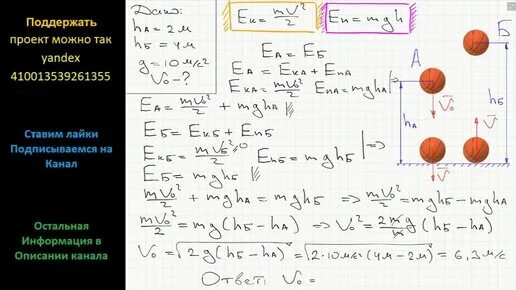 Поддержать
проект можно так
yandex
410013539261355
Ставим лайки
Подписываемся на
Канал
Остальная
Информация в
Описании канала
Дано:
hА = 2 м
hБ = 4 м
g = 10 м/с²
V₀ - ?
Eк = mV²/2
Eп = mgh
EА = EБ
EА = EкА + EпА
EкА = mV₀²/2 EпА = mghА |⇒
EА = mV₀²/2 + mghА
EБ = EкБ + EпБ
EкБ = mVБ²/2 = 0 EпБ = mghБ |⇒
EБ = mghБ
mV₀²/2 + mghА = mghБ ⇒ mV₀²/2 = mghБ - mghА
mV₀²/2 = mg(hБ - hА) ⇒ V₀² = 2mg/m (hБ - hА)
V₀ = √2g(hБ - hА) = √2·10 м/с²(4м - 2м) = 6,3 м/с
Ответ: V₀ =
А
Б
V₀
hА
hБ
V
V